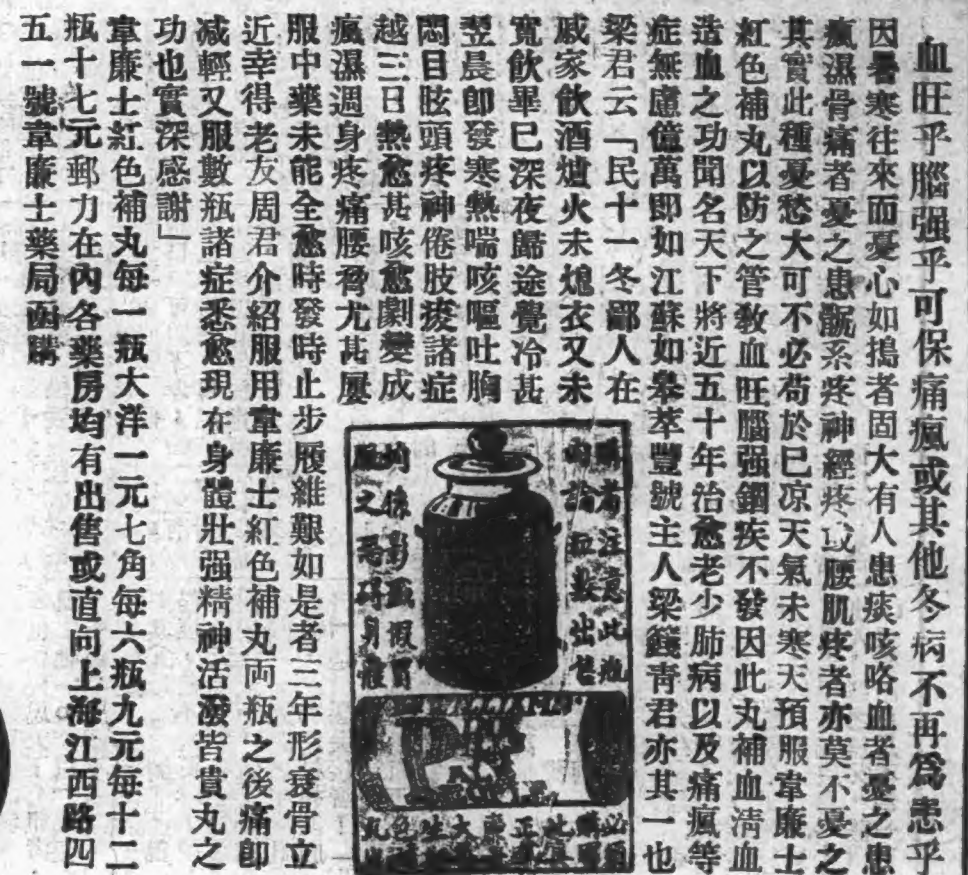 血旺乎腦强乎可保痛瘋或其他冬病不再爲患乎
因暑寒往來而憂心如搗者固大有人患痰咳咯血者憂之患
瘋濕骨痛者憂之患腦系疼神經疼或腰肌疼者亦莫不憂之
其實此種憂愁大可不必苟於已凉天氣未寒天預服韋廉士
紅色補丸以防之管教血旺腦强錮疾不發因此丸補血淸血
造血之功聞名天下將近五十年治愈老少肺病以及痛瘋等
症無慮億萬即如江蘇如皋萃豐號主人梁籛靑君亦其一也
梁君云「民十一冬鄙人在
戚家飲酒爐火未熄衣又未
寬飲畢已深夜歸途覺冷甚
翌晨卽發寒熱喘咳嘔吐胸
悶目眩頭疼神倦肢痠諸症
越三日熱愈甚咳愈劇變成
瘋濕週身疼痛腰脅尤甚屢
服中藥未能全愈時發時止步履維艱如是者三年形衰骨立
近幸得老友周君介紹服用韋廉士紅色補丸両瓶之後痛卽
减輕又服數瓶諸症悉愈現在身體壯强精神活潑皆貴丸之
功也實深感謝」
韋廉士紅色補丸每一瓶大洋一元七角每六瓶九元每十二
瓶十七元郵力在內各藥房均有出售或直向上海江西路四
五一號韋廉士藥局函購